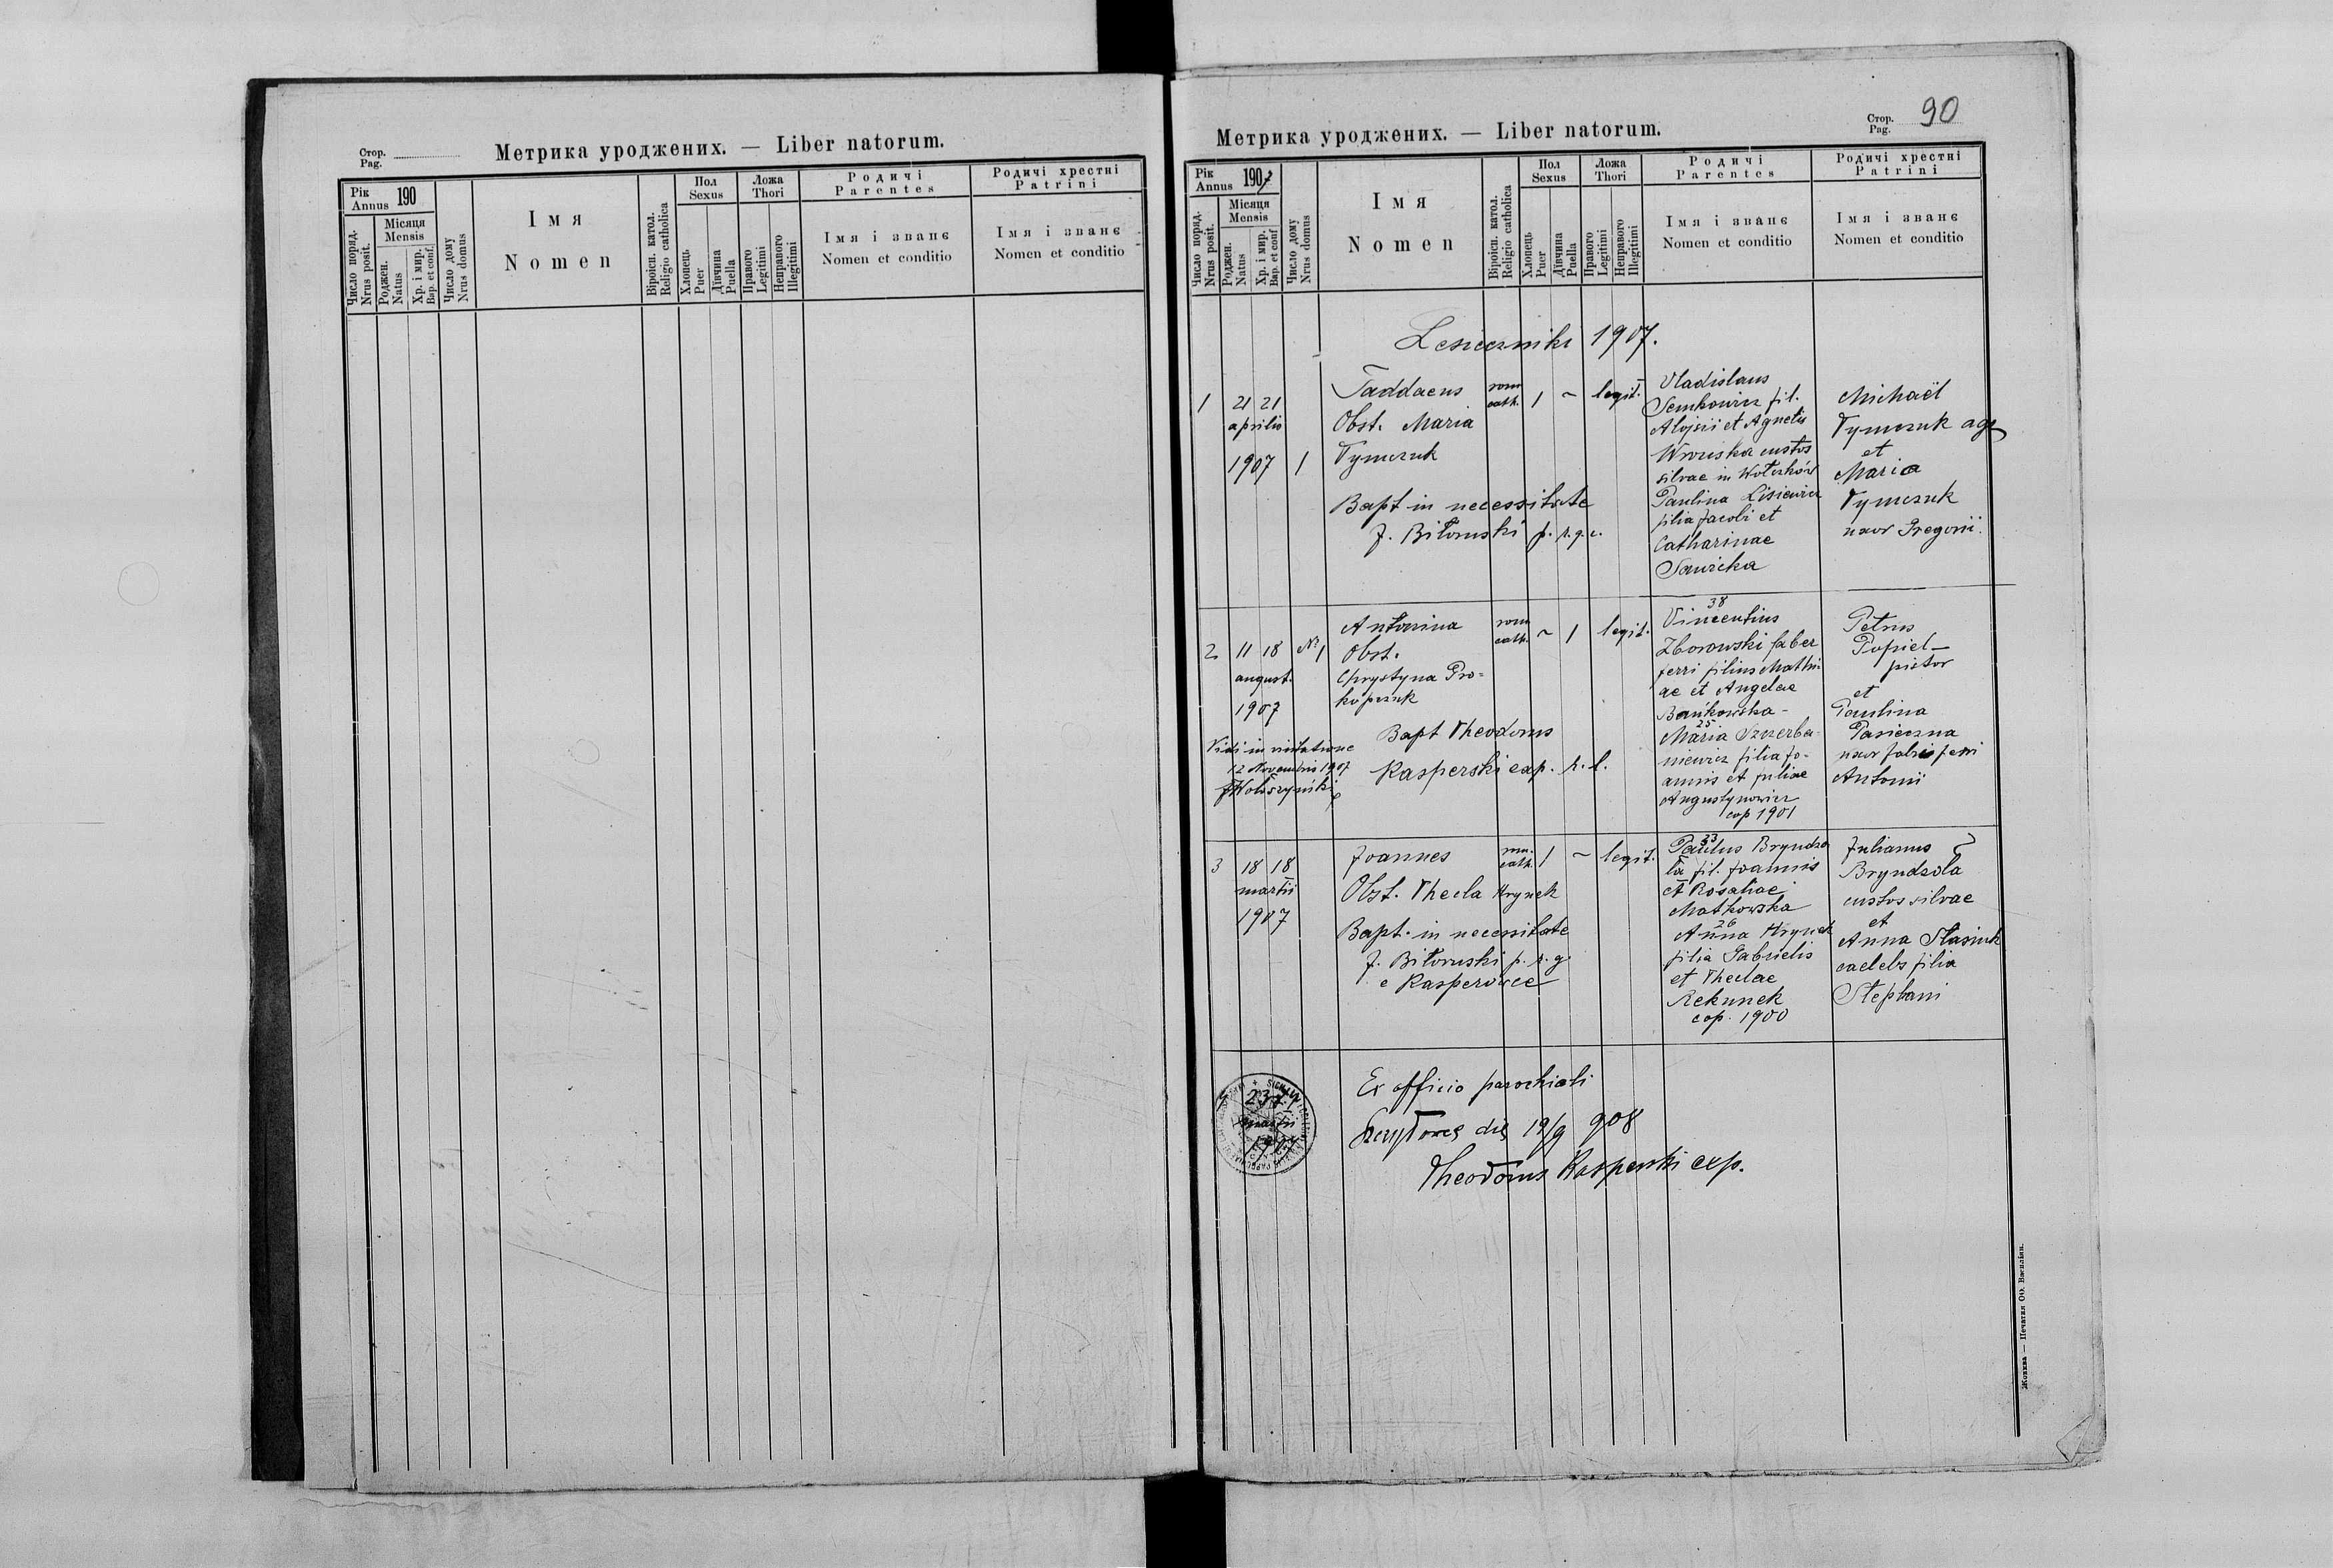 Стор.
Pag.
Метрика уроджених. — Liber natorum.
Рік
Annus 190
Місяця
Mensis
Число поряд.
Nrus posit.
Роджен.
Natus
Хр. і мир.
Bap. et conf.
Число дому
Nrus domus
Імя
Nomen
Віроісп. катол.
Religio catholica
Пол
Sexus
Хлопець
Puer
Дівчина
Puella
Ложа
Thori
Правого
Legitimi
Неправого
Illegitimi
Родичі
Parentes
Імя і званє
Nomen et conditio
Родичі хрестні
Patrini
Імя і званє
Nomen et conditio
Метрика уроджених. — Liber natorum.
Стор.
Pag. 90
Рік
Annus 1907
Місяця
Mensis
Число поряд.
Nrus posit.
Роджен.
Natus
Хр. і мир.
Bap. et conf
Число дому
Nrus domus
Імя
Nomen
Віроісп. катол.
Religio catholica
Пол
Sexus
Хлопець
Puer
Дівчина
Puella
Ложа
Thori
Правого
Legitimi
Неправого
Illegitimi
Родичі
Parentes
Імя і званє
Nomen et conditio
Родичі хрестні
Patrini
Імя і званє
Nomen et conditio
Lesieczniki 1907.
1 21 21
aprilis
1907 1
Taddaeus
Obst. Maria
Tymczuk
Bapt in necessitate
J. Biłoruski p. r. g. c.
rom
cath. 1 ~ legit.
Vladislaus
Semkowicz fil.
Alojsii et Agnetis
Wrońska custos
silvae in Wołczków
Paulina Lisiewicz
filia Jacobi et
Catharinae
Sawicka
Michaël
Tymczuk agr
et
Maria
Tymczuk
uxor Gregorii.
2 11 18 Nr 1
august.
1907
Vidi in visitatione
12 Novembris 1907
Antonina
Obst.
Chrystyna Pro=
kopczuk
Bapt Theodorus
Kasperski exp. r. l.
rom
cath. ~ 1 legit.
38
Vincentius
Zborowski faber
ferri filius Mathi
ae et Angelae
Bańkowska -
25
Maria Szczerba-
niewicz filia Jo-
annis et Juliae
Augustynowicz
cop 1901
Petrus
Popiel -
pictor
et
Paulina
Pasieczna
uxor fabri ferri
Antonii
3 18 18
martii
1907
Joannes
Obst. Thecla Hrynek
Bapt. in necessitate
J. Biłoruski p. r. g.
e Kasperowce
rom.
cath. 1 ~ legit.
33
Paulus Bryndzo
ła fil. Joannis
et Rosaliae
Matkowska
26
Anna Hrynek
filia Gabrielis
et Theclae
Rekunek
cop. 1900
Julianus
Bryndzoła
custos silvae
et
Anna Stasiuk
caelebs filia
Stephani
237
martii
1907
Ex officio parochiali
die 19/9 908
Theodorus Kasperski exp.
Жовква — Печатня ОО. Василіян.